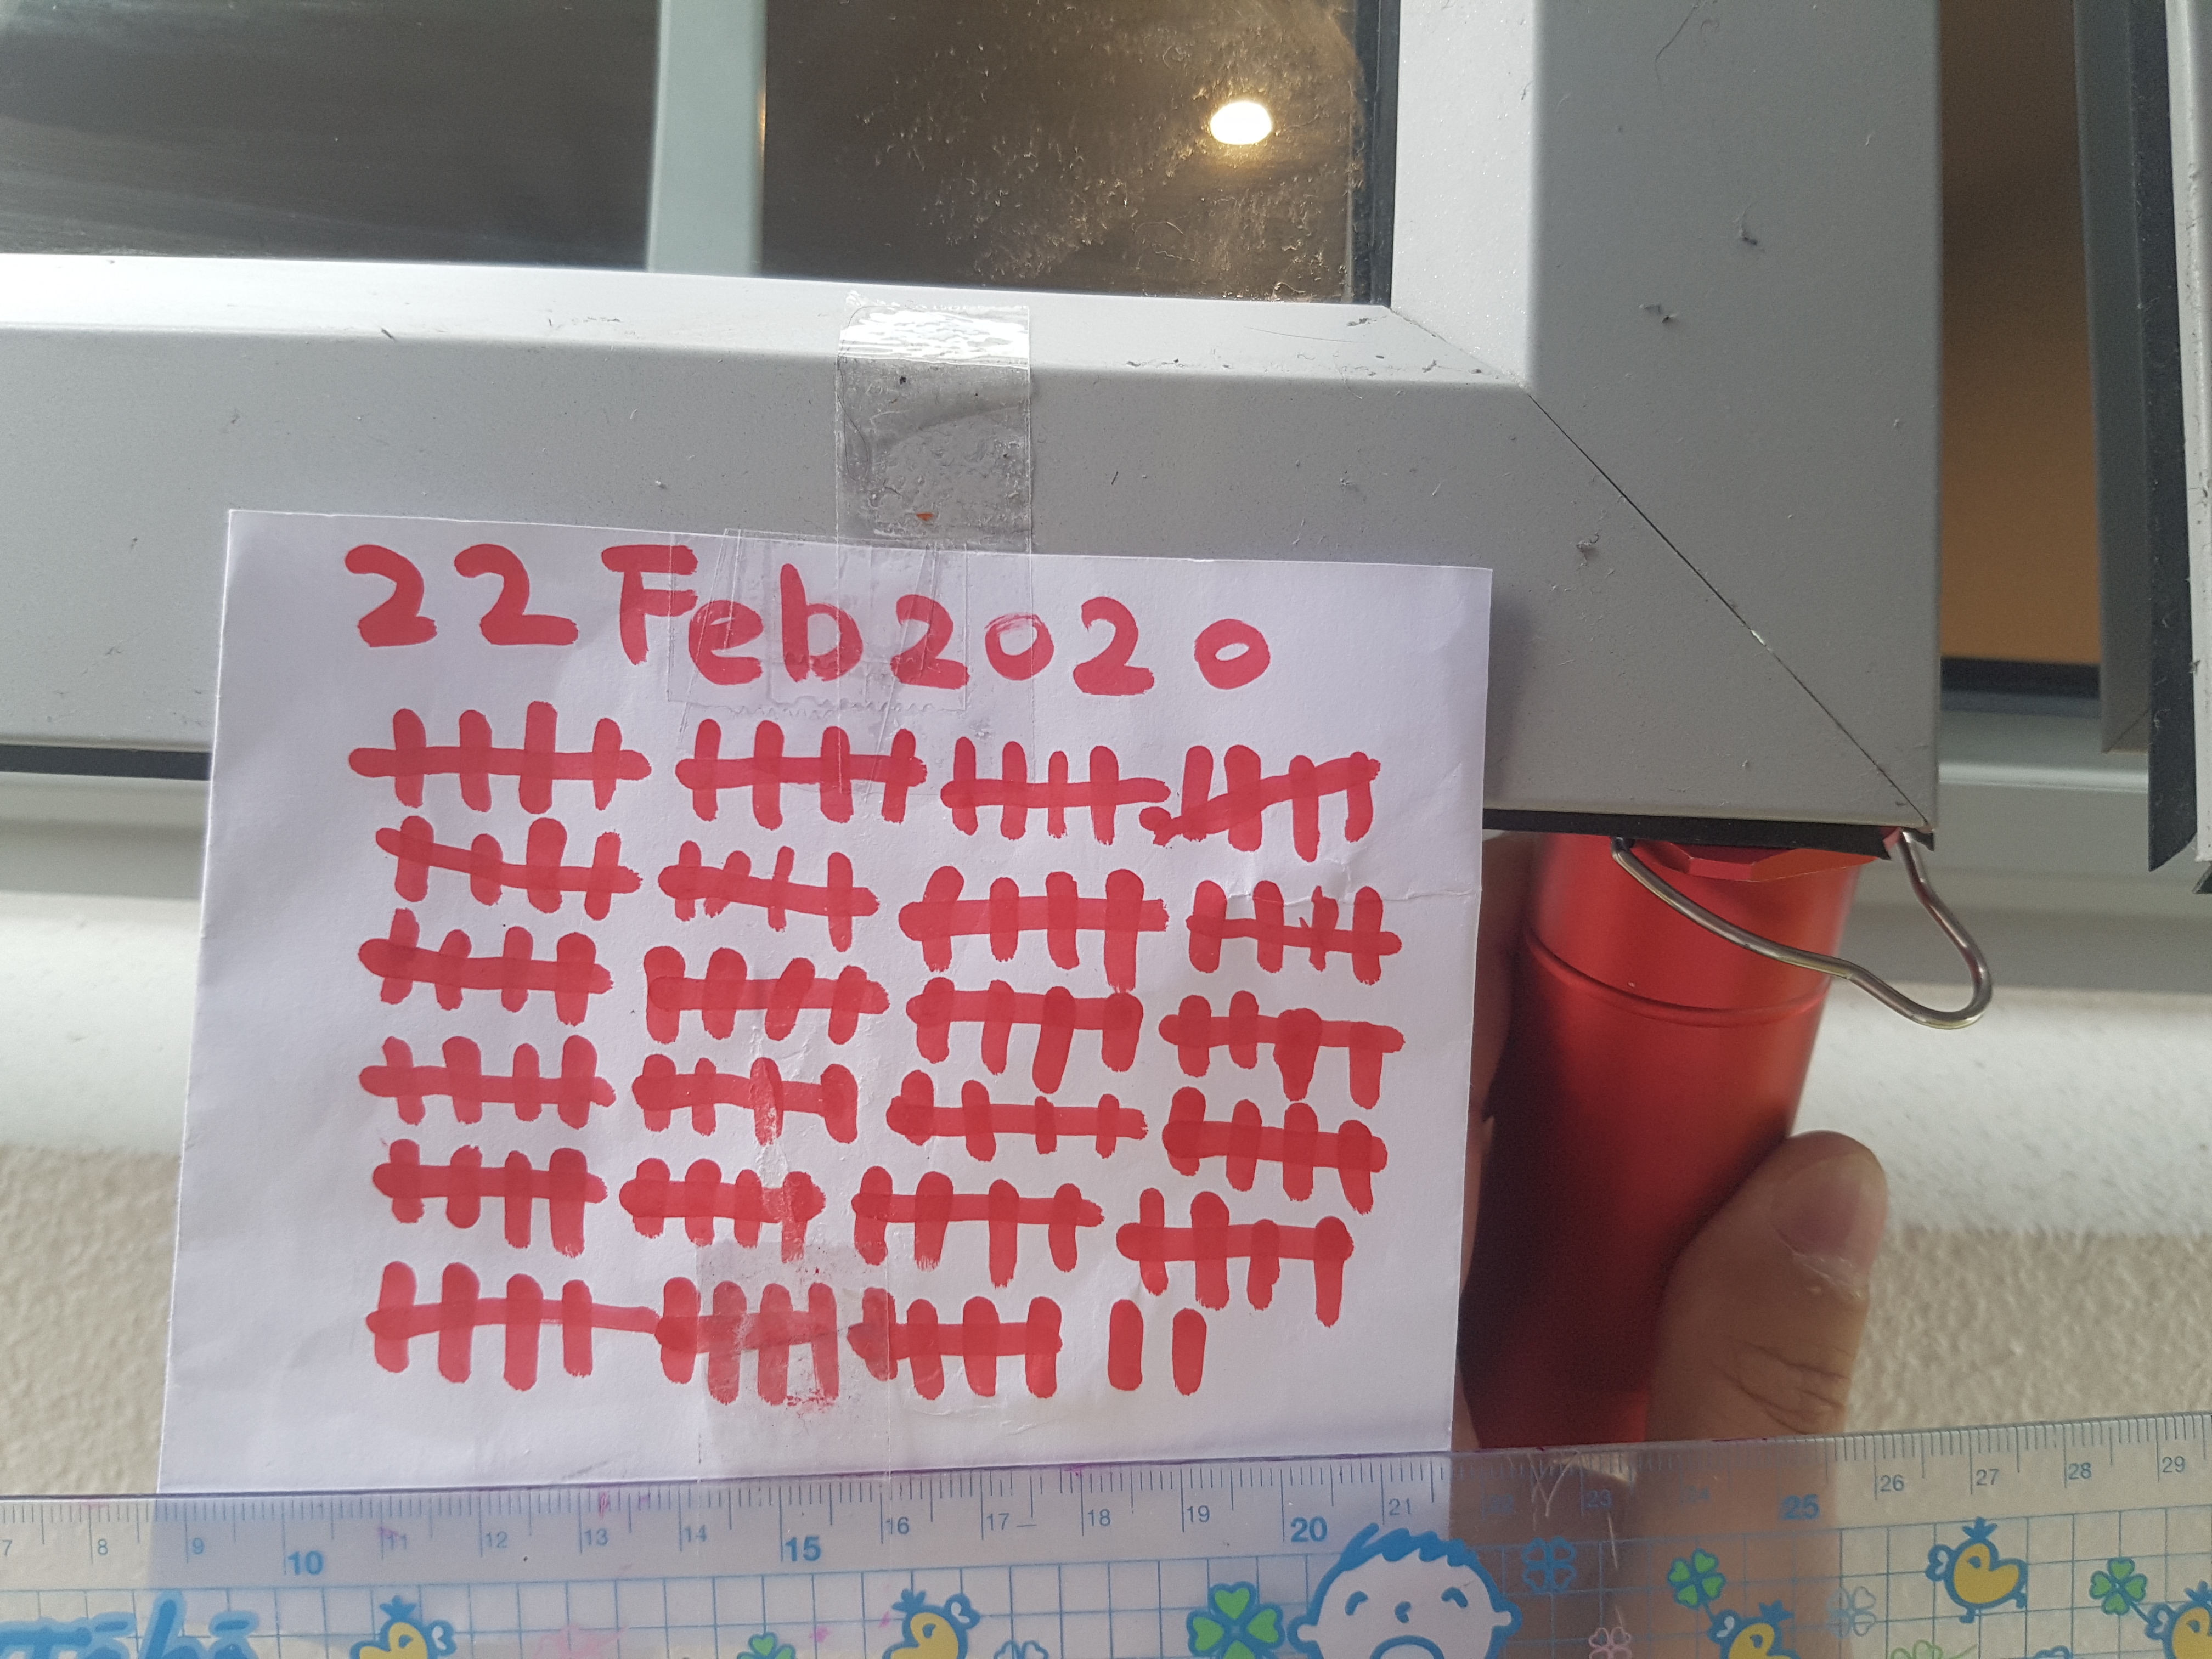 22 Feb 2020
7 8 9 10 11 12 13 14 15 16 17 18 19 20 21 22 23 24 25 26 27 28 29